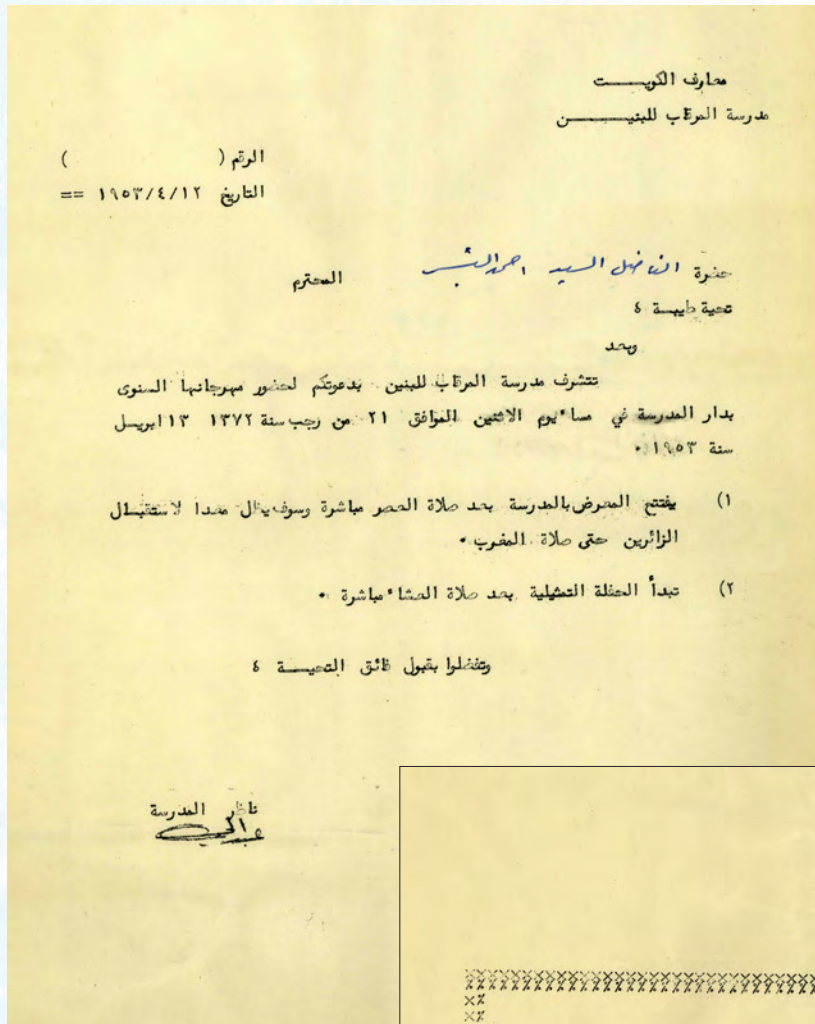 معارف الكويـــــت
مدرسة المرقاب للبنيـــــــن
الرقم (                    )
التاريخ ١٩٥٣/٤/١٢ ==
حضرة الفاضل السيد احمد البشر المحترم
تحية طيبــة ؛
وبعد
تتشرف مدرسة المرقاب للبنين بدعوتكم لحضور مهرجانها السنوى
بدار المدرسة في مساء يوم الاثنين الموافق ٢١ من رجب سنة ١٣٧٢ ١٣ ابريــل
سنة ١٩٥٣ ٠
١) يفتتح المعرض بالمدرسة بعد صلاة العصر مباشرة وسوف يظل معدا لاستقبــال
الزائرين حتى صلاة المغرب ٠
٢) تبدأ الحفلة التمثيلية بعد صلاة العشاء مباشرة ٠
وتفضلوا بقبول فائق التحيــــة ؛
ناظر المدرسة